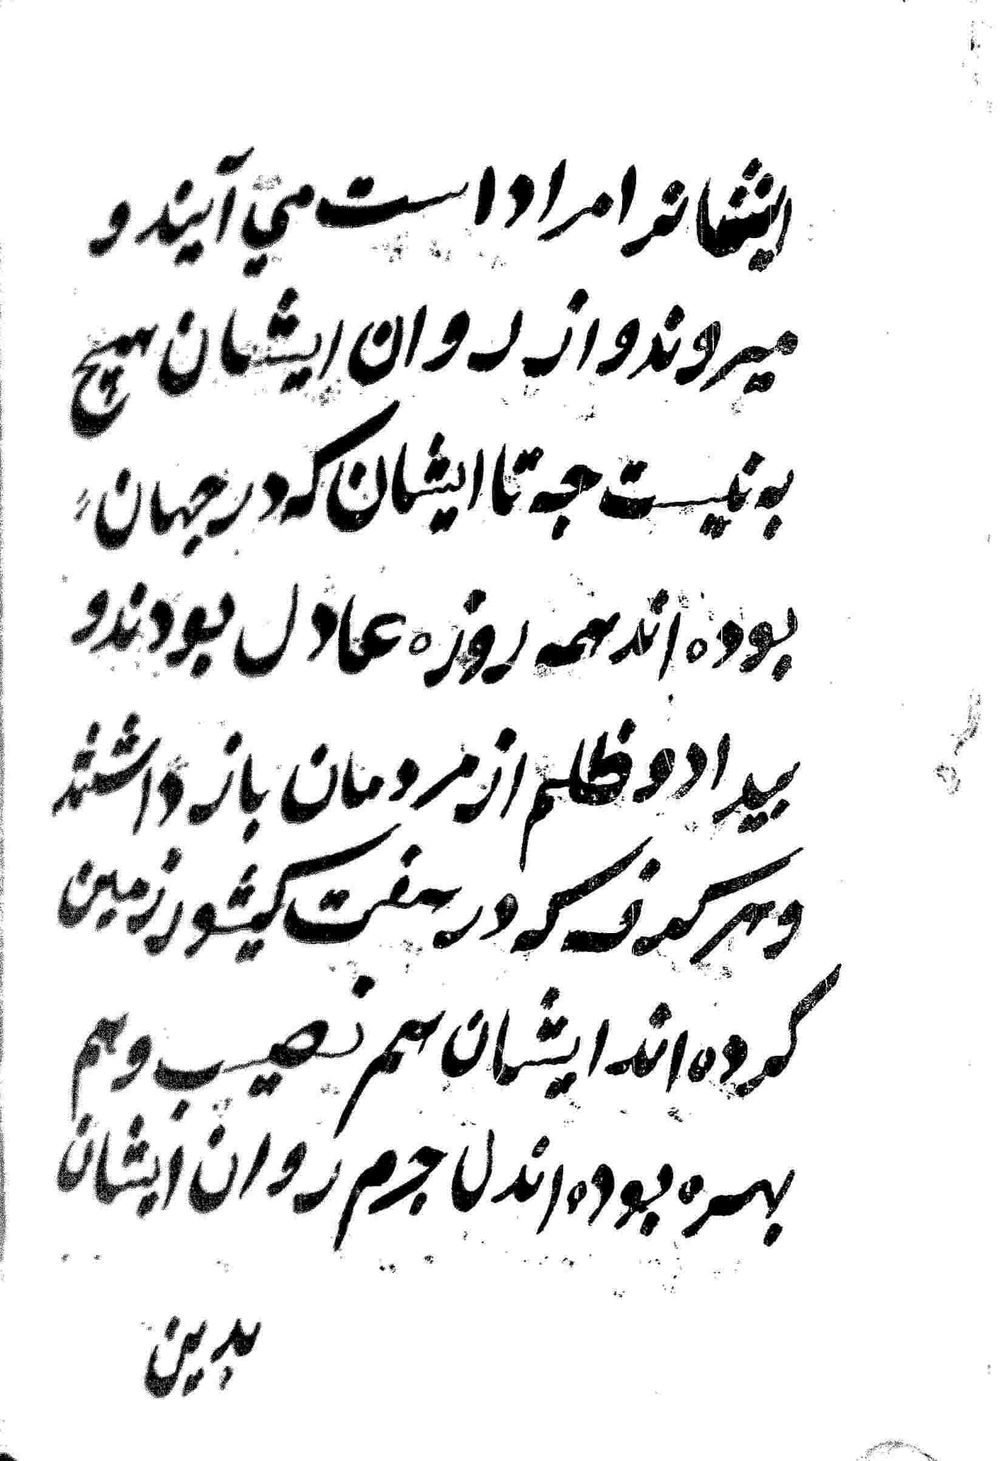 ایشانرا مراد است می آیند و
میروند و از روان ایشان هیچ
به نیست چه تا ایشان که در جهان
بوده اند همه روزه عادل بودند و
بیداد و ظلم از مردمان باز داشتند
و هر کرفه که در هفت کیشور زمین
کرده اند ایشان هم نصیب و هم
بهره بوده اند لا جرم روان ایشان
بدین